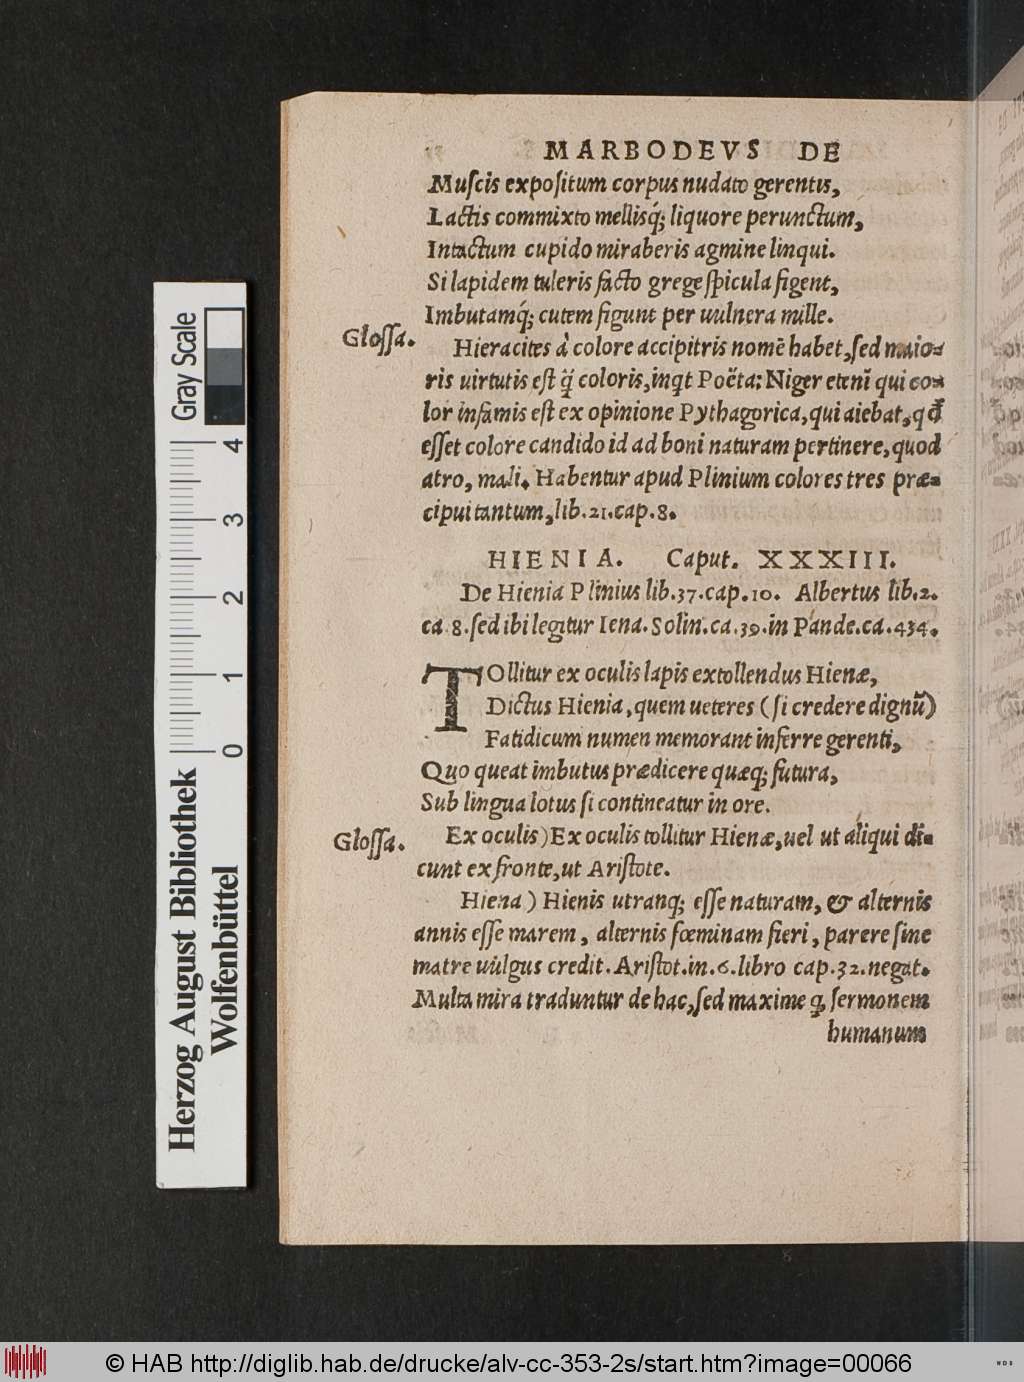 MARBODEVS DE
Muscis expositum corpus nudato gerentis,
Lactis commixto mellisq́; liquore perunctum,
Intactum cupido miraberis agmine linqui.
Si lapidem tuleris facto grege spicula figent,
Imbutamq́; cutem figunt per uulnera mille.
Glossa.
Hieracites à colore accipitris nomē habet, sed maio-
ris uirtutis est q̃ coloris, inqt Poëta: Niger etenĩ qui co-
lor infamis est ex opinione Pythagorica, qui aiebat, qđ
esset colore candido id ad boni naturam pertinere, quod
atro, mali. Habentur apud Plinium colores tres præ-
cipui tantum, lib. 21. cap. 8.
HIENIA. Caput. XXXIII.
De Hienia Plinius lib. 37. cap. 10. Albertus lib. 2.
ca 8. sed ibi legitur Iena. Solin. ca. 39. in Pande. ca. 434.
TOllitur ex oculis lapis extollendus Hienæ,
Dictus Hienia, quem ueteres (si credere dignũ)
Fatidicum numen memorant inferre gerenti,
Quo queat imbutus prædicere quæq; futura,
Sub lingua lotus si contineatur in ore.
Glossa.
Ex oculis) Ex oculis tollitur Hienæ, uel ut áliqui di-
cunt ex fronte, ut Aristote.
Hiena) Hienis utranq; esse naturam, & alternis
annis esse marem, alternis fœminam fieri, parere sine
matre uulgus credit. Aristot. in. 6. libro cap. 32. negat.
Multa mira traduntur de hac, sed maxime ꝙ sermonem
humanum
Gray Scale
0 1 2 3 4
Herzog August Bibliothek
Wolfenbüttel
© HAB http://diglib.hab.de/drucke/alv-cc-353-2s/start.htm?image=00066